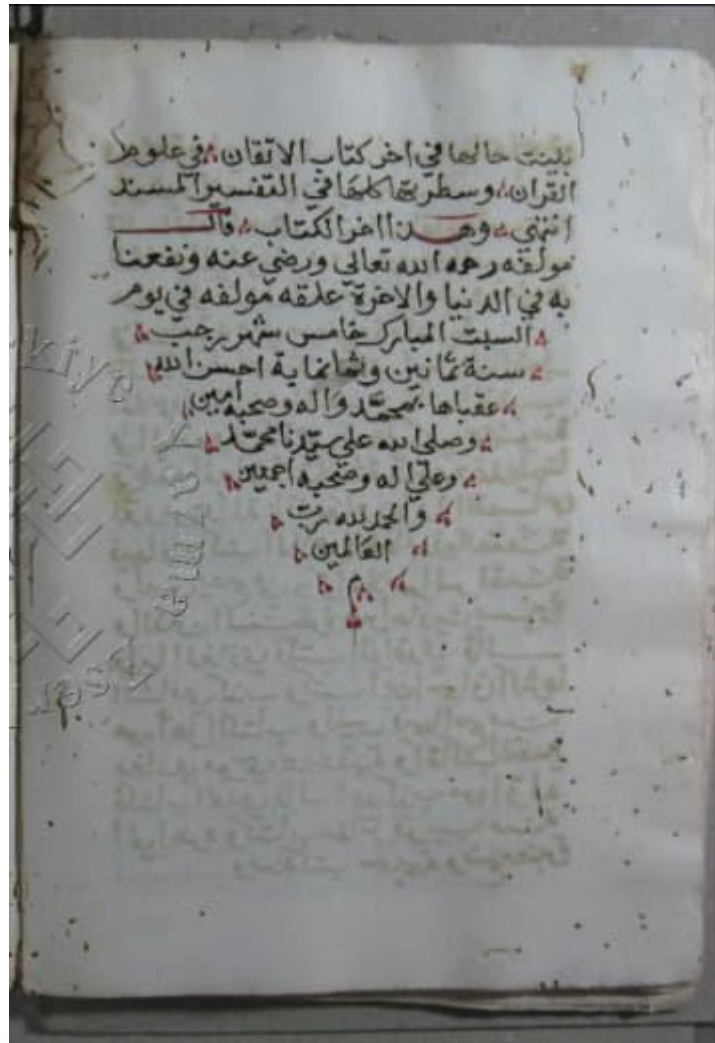 بينت حالها في اخر كتاب الاتقان في علوم
القران وسطرتها كلها في التفسير المسند
انتهي وهذا اخر الكتاب قال
مولفه رحمه الله تعالي ورضي عنه ونفعنا
به في الدنيا والاخرة علقه مولفه في يوم
السبت المبارك خامس شهر رجب
سنة ثمانين وثمانماية احسن الله
عقباها بمحمد واله وصحبه امين
وصلى الله علي سيدنا محمد
وعلي اله وصحبه اجمعين
والحمد لله رب
العالمين
م